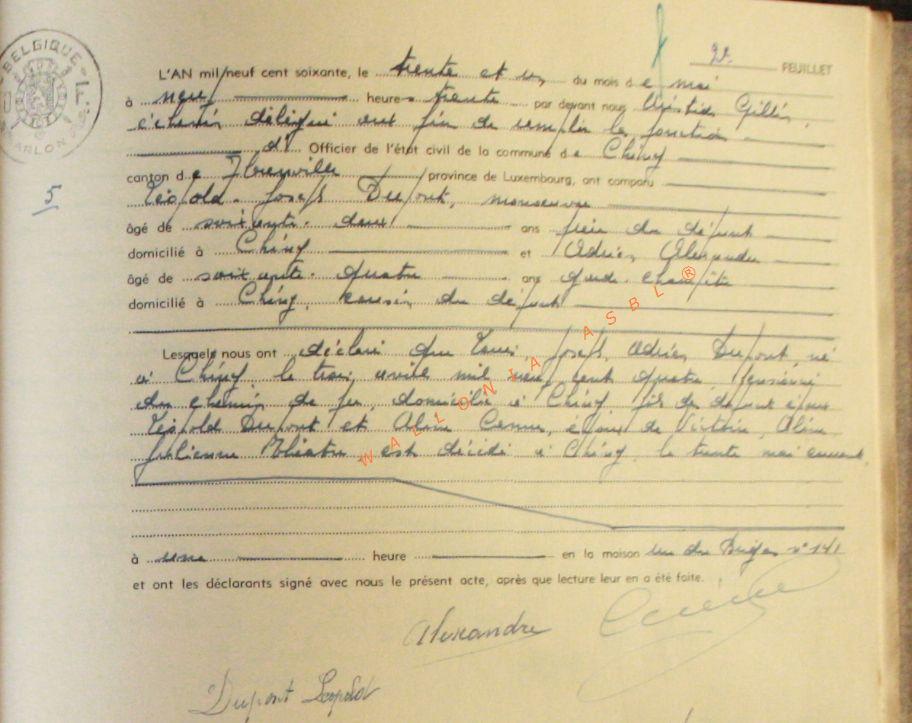 BELGIQUE
ARLON
2e FEUILLET
L'AN mil neuf cent soixante, le trente et un du mois de mai
à neuf heures trente par devant nous Gillet,
échevin délégué aux fin de remplir la fonction
d' Officier de l'état civil de la commune de Chiny
canton de Florenville province de Luxembourg, ont comparu
Léopold Joseph Dupont, manoeuvre
5
âgé de soixante-deux ans frère du défunt
domicilié à Chiny et Adrien Alexandre
âgé de soixante-quatre ans garde
domicilié à Chiny, cousin du défunt
Lesquels nous ont déclaré que Louis, Joseph, Adrien Dupont, né
à Chiny, le trois avril mil neuf cent quatre, pensionné
du chemin de fer, domicilié à Chiny fils de défunts époux
Léopold Dupont et époux de Victoire, Aline
Julienne est décédé à Chiny, le trente mai courant
à une heure en la maison rue du n° 141
et ont les déclarants signé avec nous le présent acte, après que lecture leur en a été faite.
Alexandre
Dupont Léopold
WALLONIA ASBL ®